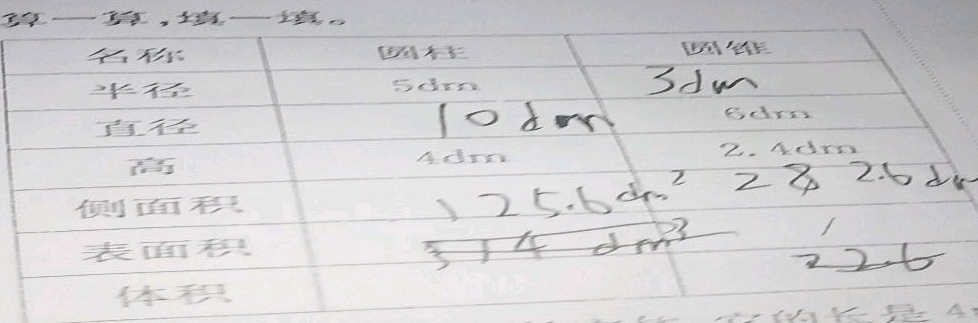 算一算,填一填。
名称 圆柱 圆锥
半径 5dm 3dm
直径 10dm 6dm
高 4dm 2.4dm
侧面积 125.6dm² 2.6dm
表面积 314dm² /
体积 22.6